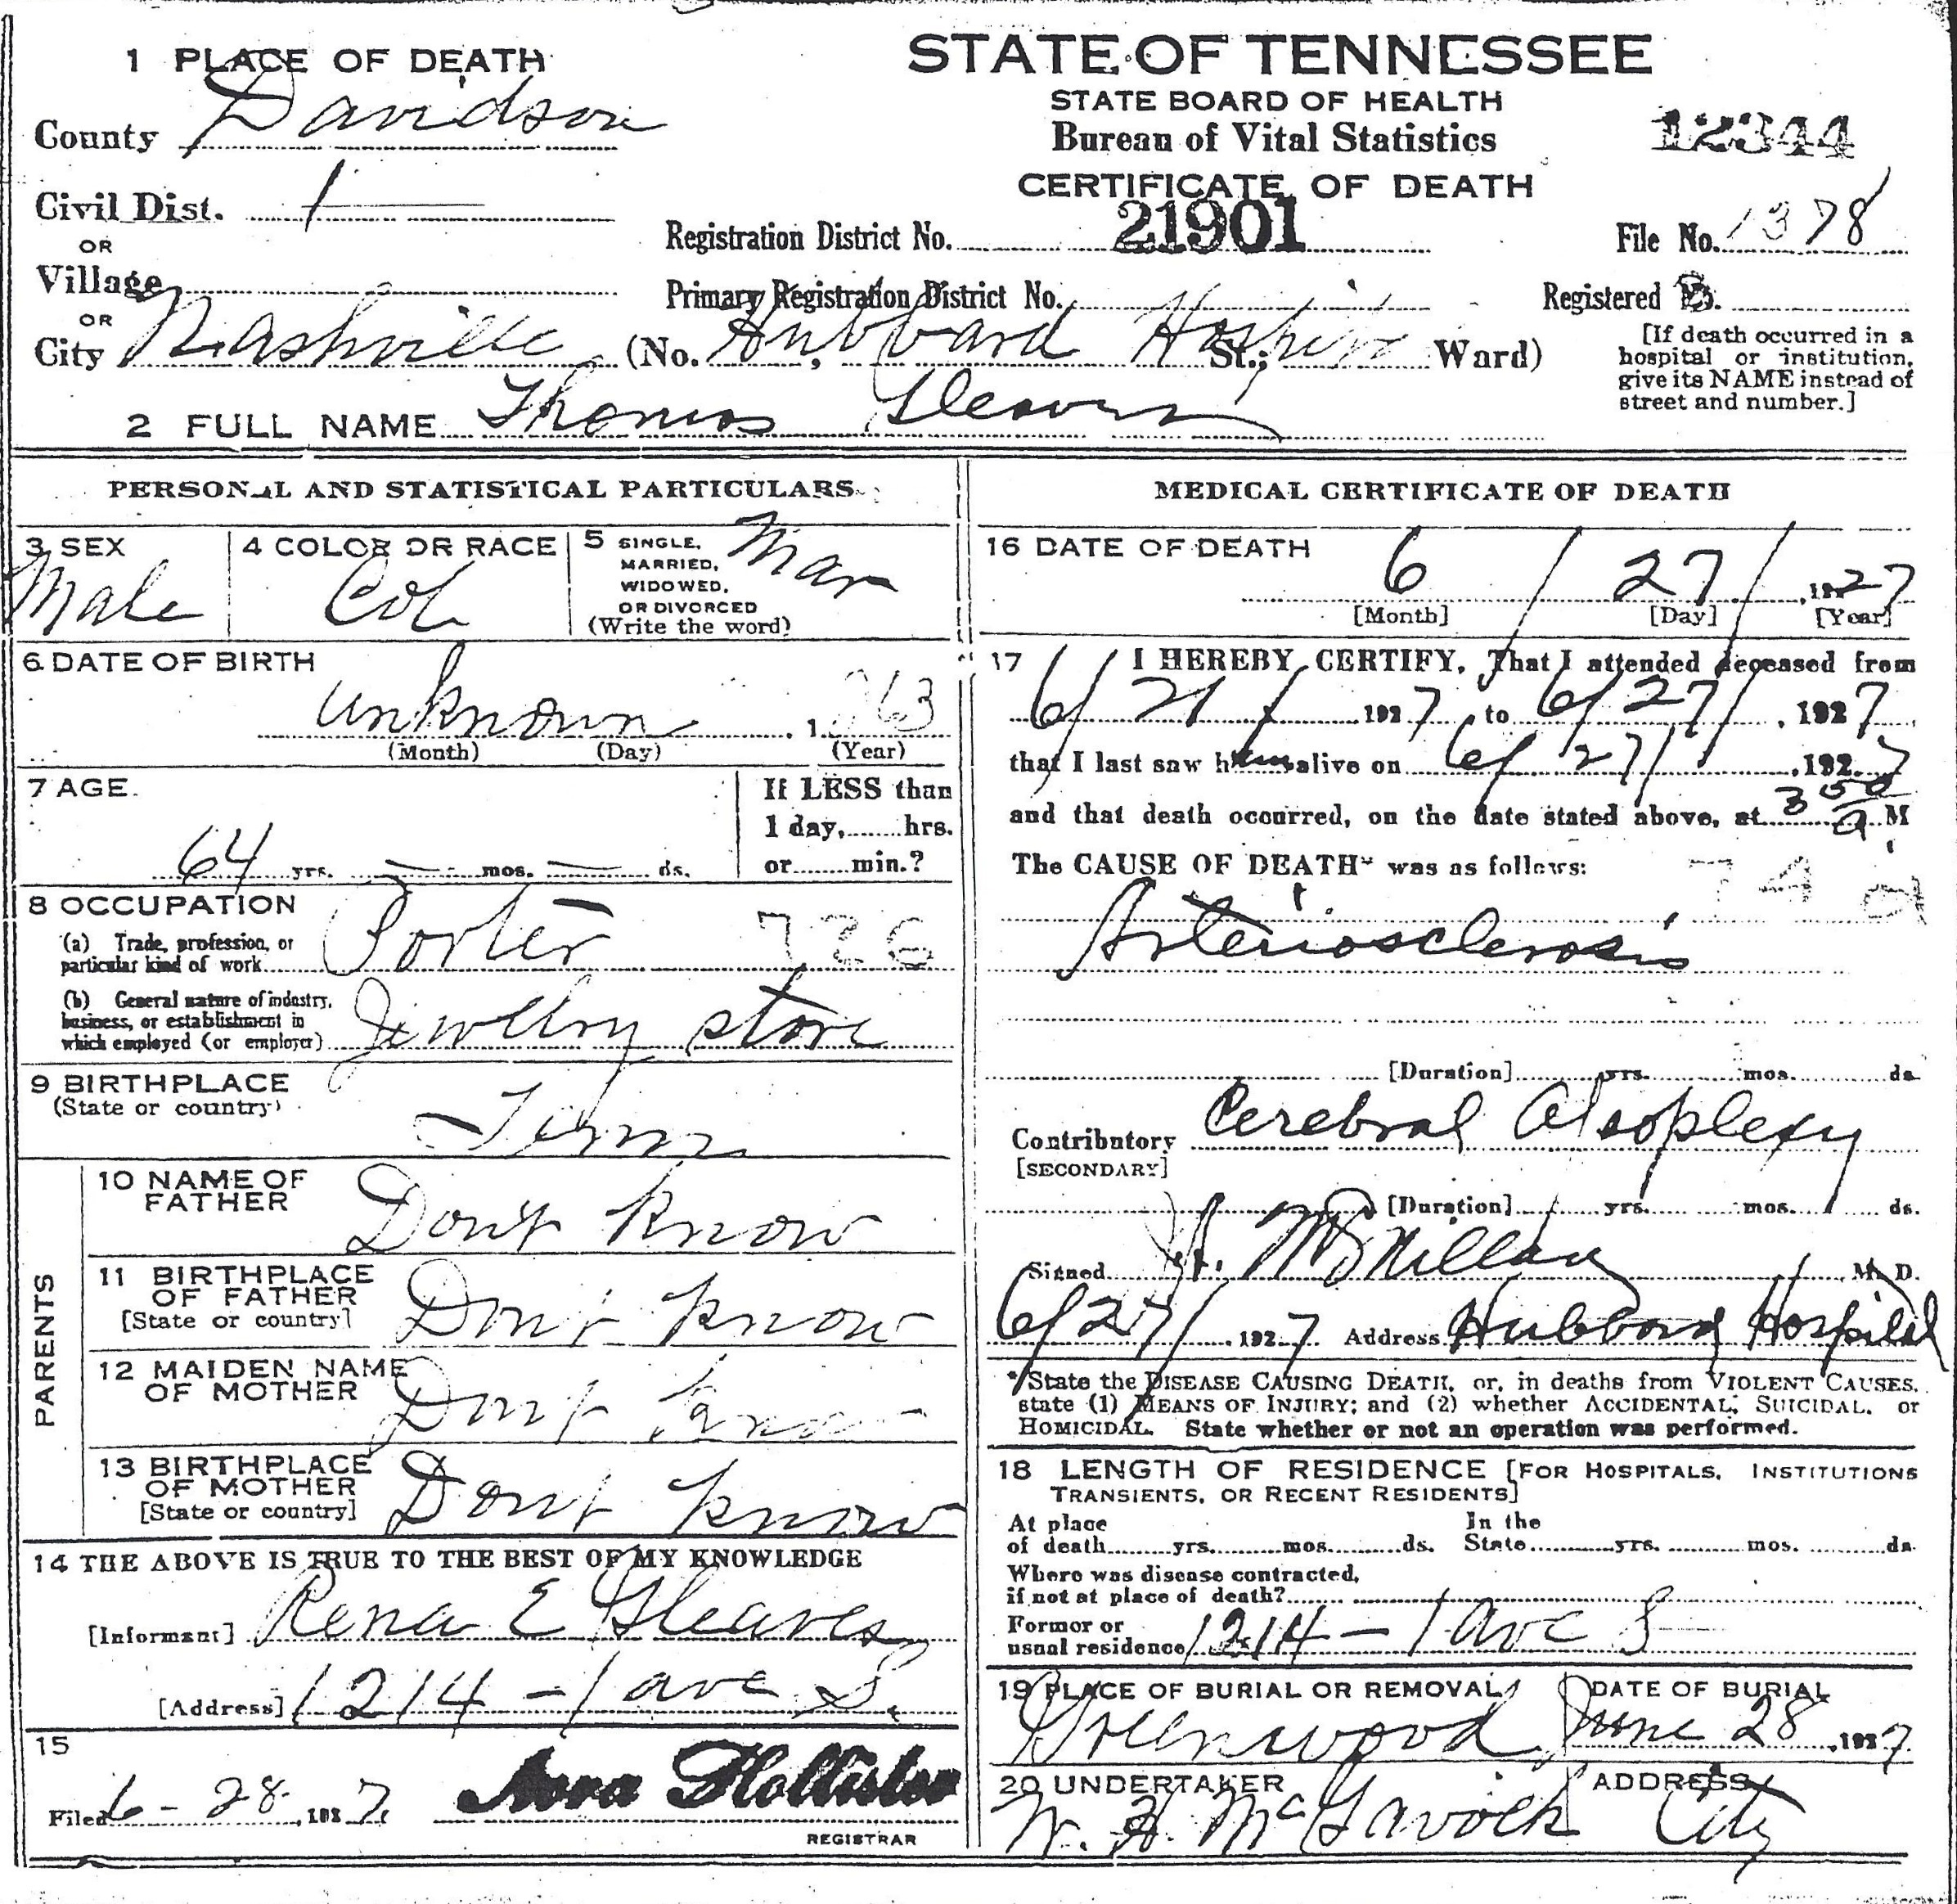 STATE OF TENNESSEE
STATE BOARD OF HEALTH
Bureau of Vital Statistics
CERTIFICATE OF DEATH
12344
1 PLACE OF DEATH
County Davidson
Civil Dist. 1
OR
Village
OR
City Nashville (No. Hubbard Hospital St.; Ward)
Registration District No. 21901
File No. 1378
Primary Registration District No.
Registered
[If death occurred in a
hospital or institution,
give its NAME instead of
street and number.]
2 FULL NAME Thomas Gleaves
PERSONAL AND STATISTICAL PARTICULARS
3 SEX
Male
4 COLOR OR RACE
Col
5 SINGLE,
MARRIED,
WIDOWED,
OR DIVORCED
(Write the word)
Mar
6 DATE OF BIRTH
unknown , 1863
(Month) (Day) (Year)
7 AGE
64 yrs. — mos. — ds.
If LESS than
1 day, hrs.
or min.?
8 OCCUPATION
(a) Trade, profession, or
particular kind of work Porter 726
(b) General nature of industry,
business, or establishment in
which employed (or employer) Jewelry store
9 BIRTHPLACE
(State or country) Tenn
PARENTS
10 NAME OF
FATHER Dont know
11 BIRTHPLACE
OF FATHER
[State or country] Dont know
12 MAIDEN NAME
OF MOTHER Dont know
13 BIRTHPLACE
OF MOTHER
[State or country] Dont know
14 THE ABOVE IS TRUE TO THE BEST OF MY KNOWLEDGE
[Informant] Rena E Gleaves
[Address] 1214 - 1 ave S.
15
Filed 6 - 28 , 1927 Nora Hollister
REGISTRAR
MEDICAL CERTIFICATE OF DEATH
16 DATE OF DEATH
6 / 27 / , 1927
[Month] [Day] [Year]
17 I HEREBY CERTIFY, That I attended deceased from
6/21/ 1927, to 6/27/, 1927,
that I last saw him alive on 6/27/, 1927
and that death occurred, on the date stated above, at 3 50 a M
The CAUSE OF DEATH* was as follows:
74 a
Arteriosclerosis
[Duration] yrs. mos. ds
Contributory Cerebral Apoplexy
[SECONDARY]
[Duration] yrs. mos. ds.
Signed McMillan M. D.
6/27/, 1927 Address Hubbard Hospital
*State the DISEASE CAUSING DEATH, or, in deaths from VIOLENT CAUSES,
state (1) MEANS OF INJURY; and (2) whether ACCIDENTAL, SUICIDAL, or
HOMICIDAL. State whether or not an operation was performed.
18 LENGTH OF RESIDENCE [FOR HOSPITALS, INSTITUTIONS
TRANSIENTS, OR RECENT RESIDENTS]
At place
of death yrs. mos. ds.
In the
State yrs. mos. ds
Where was disease contracted,
if not at place of death?
Former or
usual residence 1214 - 1 ave S
19 PLACE OF BURIAL OR REMOVAL
Greenwood
DATE OF BURIAL
June 28, 1927
20 UNDERTAKER
W. H. McGavock
ADDRESS
City